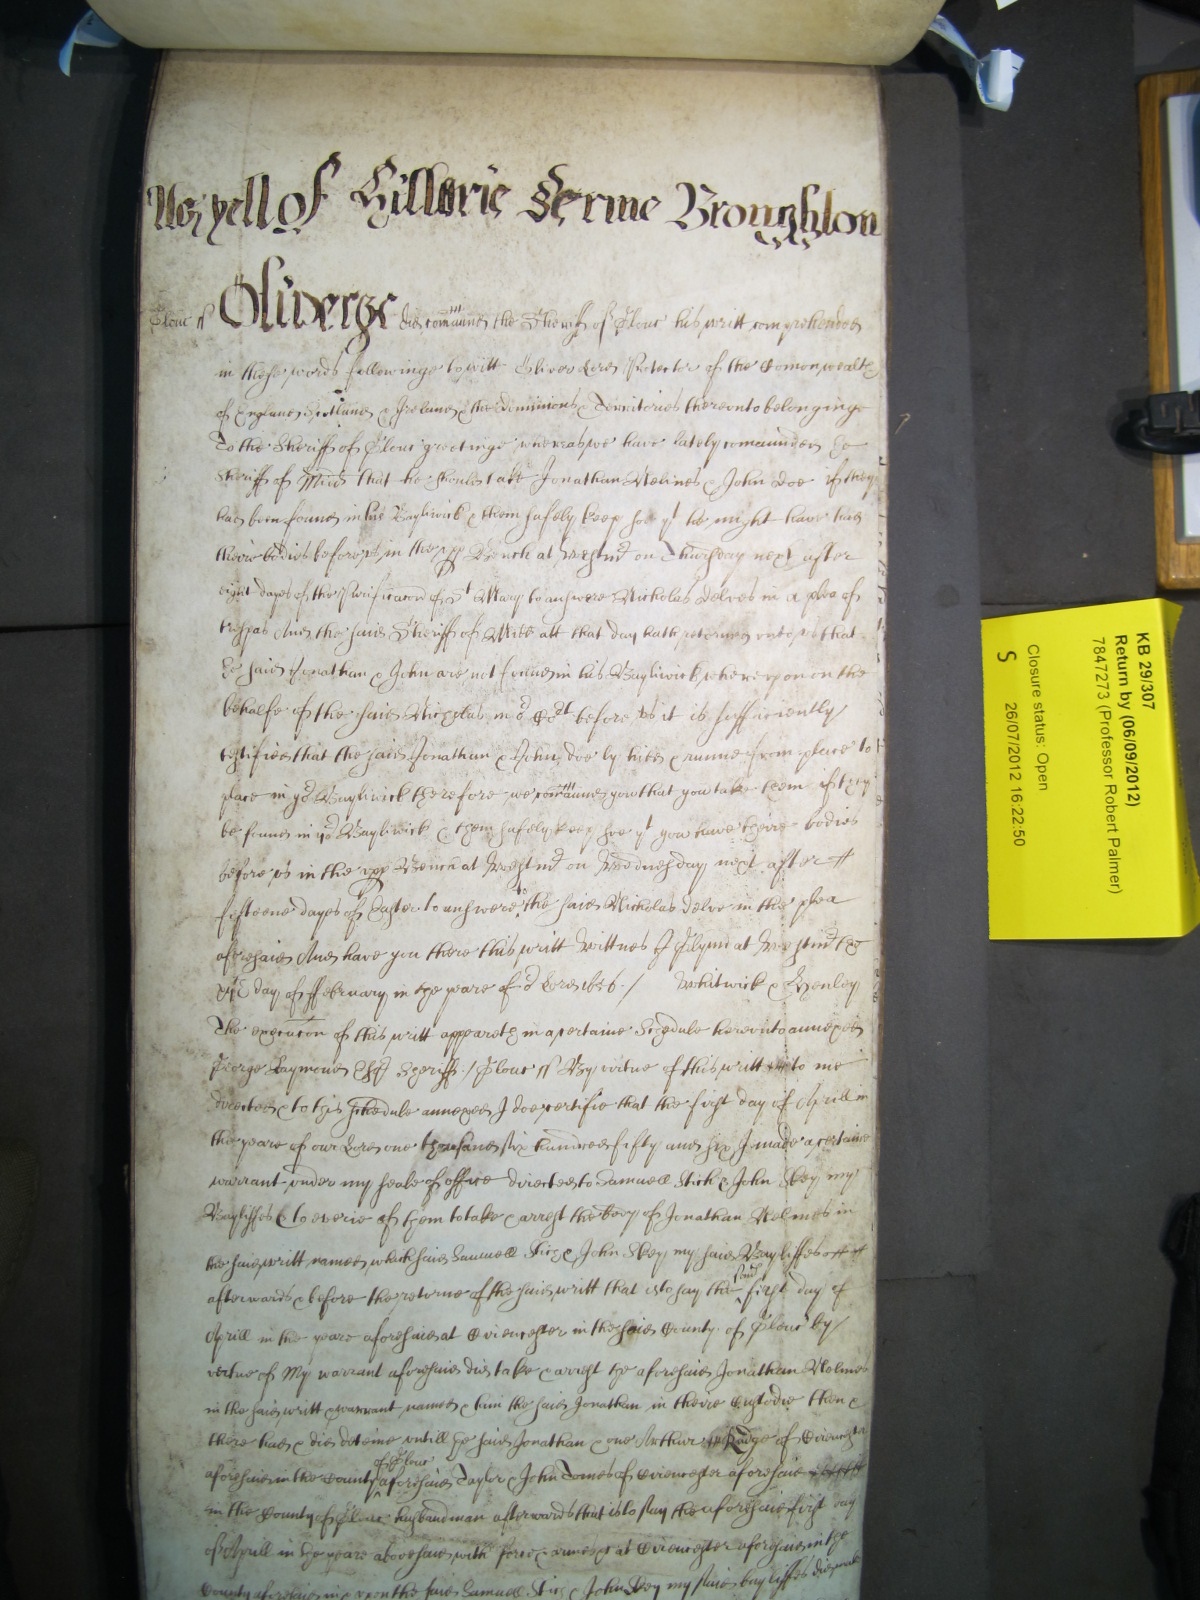 yell of Hillarie Terme Broughton
Glouc ss Oliver &c did commaund the Sheriff of Glouc his writt comprehended
in these words followinge to witt Oliver Lord Protector of the Comonwealth
of England Scotland & Ireland & the dominions & Territories thereunto belonginge
To the Sheriff of Glouc greetinge whereas we have lately comaunded
Sheriff of Midd that he should take Jonathan & John Doe if they
had been found in his Bayliwick & them safely keep soe yt he might have had
theire bodies before us in the upp Bench at Westmr on Thursday next after
eight dayes of the Purificacon of St Mary to answere Nicholas Delves in a plea of
trespas And the said Sheriff of Midd att that day hath returned unto us that
the said Jonathan & John are not found in his Bayliwick whereupon on the
behalfe of the said Nicholas in or Cort before us it is sufficiently
testified that the said Jonathan & John doe lye hidd & runne from place to
place in yor Bayliwick therefore we commaund you that you take them if they
be found in yor Bayliwick & them safely keep soe yt you have theire bodies
before us in the upp Bench at Westmr on Wednesday next after
fifteene dayes of Easter to answere to the said Nicholas Delve in the plea
aforesaid And have you there this writt Wittnes J Glynn at Westmr the
day of February in the yeare of or Lord 1656 / Whitwick & Henley
The execucon of this writt appeareth in a certaine Scedule hereunto annexed
George Raymond Esqr Sheriff / Glouc ss By virtue of this writt to me
directed & to this schedule annexed I doe certifie that the first day of Aprill in
the yeare of our Lord one thousand six hundred fifty and six I made a certaine
warrant under my seale of office directed to Samuell Stick & John Skey my
Bayliffes & to everie of them to take & arrest the body of Jonathan in
the said writt named which said Samuell & John Skey my said Bayliffes
afterwards & before the returne of the said writt that is to say the said first day of
Aprill in the yeare aforesaid at Cirencester in the said County of Glouc by
vertue of My warrant aforesaid did take & arrest the aforesaid Jonathan
in the said writt & warrant named & him the said Jonathan in theire Custodie then &
there had & did deteine untill the said Jonathan & one Arthur of Cirencester
aforesaid in the County of Glouc aforesaid Taylor & John Tomes of Cirencester aforesaid
in the County of Glouc husbandman afterwards that is to say the aforesaid first day
of Aprill in the yeare abovesaid with force & armes at Cirencester aforesaid in the
County aforesaid in & upon the said Samuell & John Skey my said bayliffes did make
KB 29/307
Return by (06/09/2012)
7847273 (Professor Robert Palmer)
Closure status: Open
S 26/07/2012 16:22:50